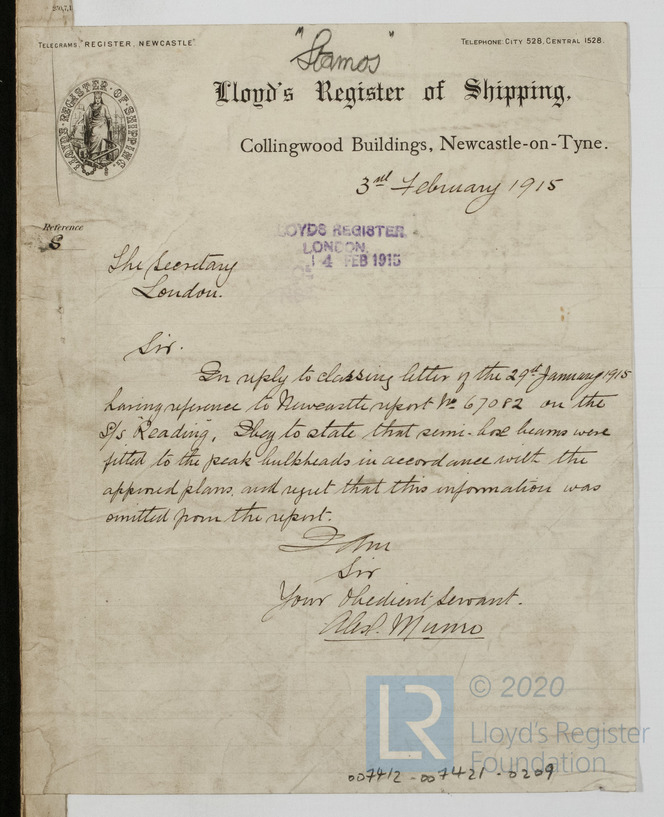 250,7,1
TELEGRAMS, "REGISTER, NEWCASTLE"
TELEPHONE: CITY 528, CENTRAL 1528.
"Stamos"
Lloyd's Register of Shipping,
LLOYD'S·REGISTER·OF·SHIPPING.
Collingwood Buildings, Newcastle-on-Tyne.
3rd February 1915
Reference
S
LOYDS REGISTER
LONDON.
4 FEB 1915
The Secretary
London.
Sir.
In reply to classing letter of the 29th January 1915
having reference to Newcastle report No 67082 on the
S/s "Reading, I beg to state that semi-box beams were
fitted to the peak bulkheads in accordance with the
approved plans, and regret that this information was
omitted from the report.
I am
Sir
Your Obedient Servant.
Alexr. Munro
© 2020
LR
Lloyd's Register
Foundation
007412-007421-0209